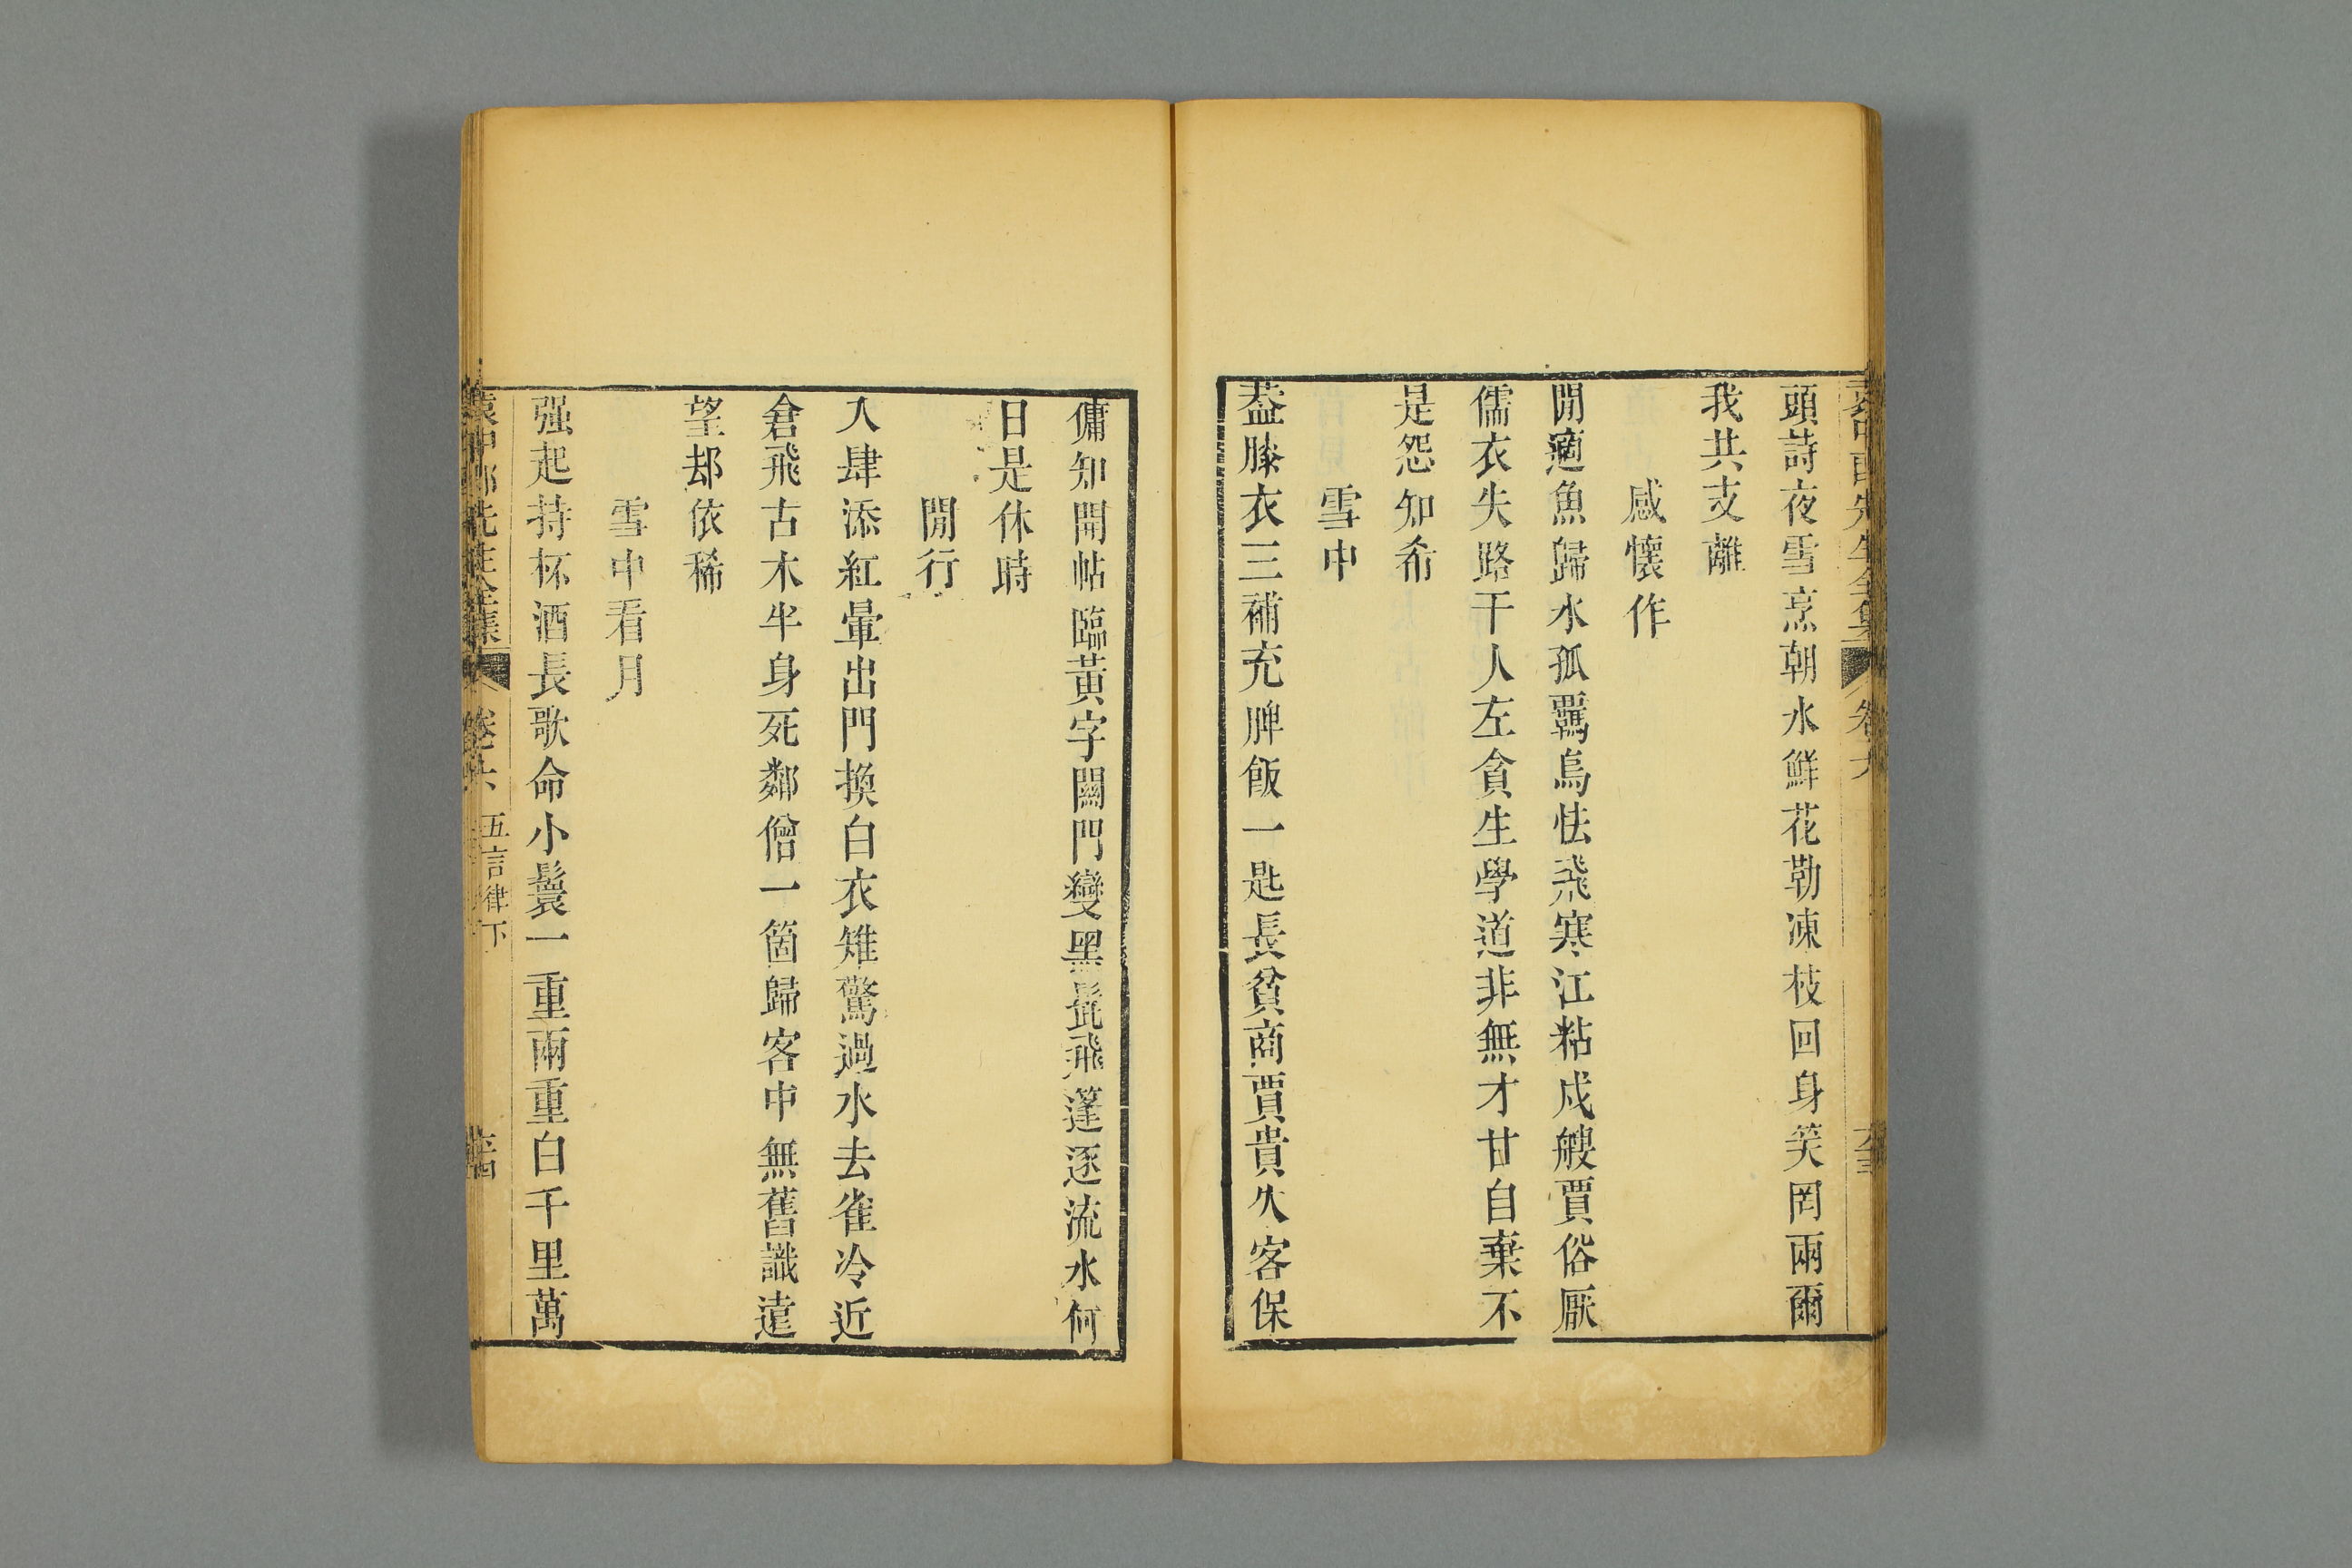 頭詩夜雪烹朝水鮮花勒凍枝回身笑罔兩爾
我共支離
感懷作
閒適魚歸水孤羈鳥怯飛寒江粘戍艘賈俗厭
儒衣失路干人左貪生學道非無才甘自棄不
是怨知希
雪中
葢膝衣三補充脾飯一匙長貧商賈貴久客保
傭知開帖臨黃字關門變黑髭飛蓬逐流水何
日是休時
閒行
入肆添紅暈出門換白衣雉驚過水去雀冷近
倉飛古木半身死鄰僧一箇歸客中無舊識遠
望却依稀
雪中看月
强起持杯酒長歌命小鬟一重兩重白千里萬
袁中郎先生全集 卷六 五言律下